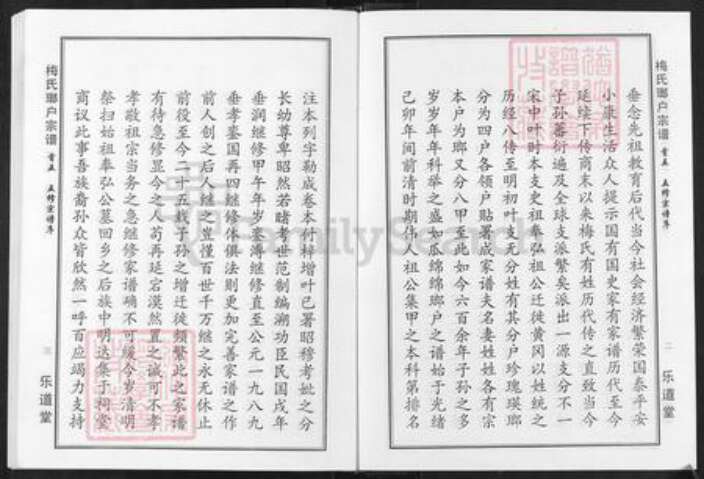 梅氏瑯户宗谱 首五 五修宗谱序
二
乐道堂
垂念先祖教育后代当今社会经济繁荣国泰平安
小康生活众人提示国有国史家有家谱历代至今
延续下传商末以来梅氏有姓历代传之直致当今
子孙蕃衍遍及全球支派繁矣派出一源支分不一
宋中叶时本支史祖奉弘祖公迁徙黄冈以姓统之
历经八传至明初叶支无分姓有其分户珍瑰瑛瑯
分为四户各领户贴署成家谱夫名妻姓姓各有宗
本户为瑯又分八甲至此如今六百余年子孙之多
岁岁年年科举之盛如瓜绵绵瑯户之谱始于光绪
己卯年间前清时期伟人祖公集甲之本科第排名
注本列字勒成卷本付梓增叶已署昭穆考妣之分
长幼尊卑昭然若睹考世范制编溯功臣民国戌年
垂润继修甲午年岁鉴溥继修直至公元一九八九
垂孝鉴国再四继修体俱法则更加完善家谱之作
前人创之后人继之岂惟百世千万继之永无休止
前役至今二十五载子孙之增迁徙频繁此之家谱
有待急修显今之人苟再延宕漠然置之诚可不孝
孝敬祖宗当务之急继修家谱确不可缓今岁清明
祭扫始祖奉弘公墓回乡之后族中明达集于祠堂
商议此事吾族裔孙众皆欣然一呼百应竭力支持
梅氏瑯户宗谱 首五 五修宗谱序
三
乐道堂
FamilySearch